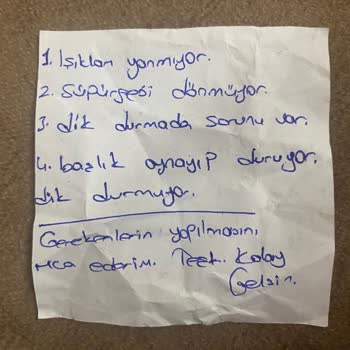 1. Işıkları yanmıyor.
2. Süpürgesi dönmüyor.
3. dik durmada sorunu var.
4. başlık oynayıp duruyor.
dik durmuyor.
Gerekenlerin yapılmasını,
rica ederim. Teşk. Kolay
Gelsin.